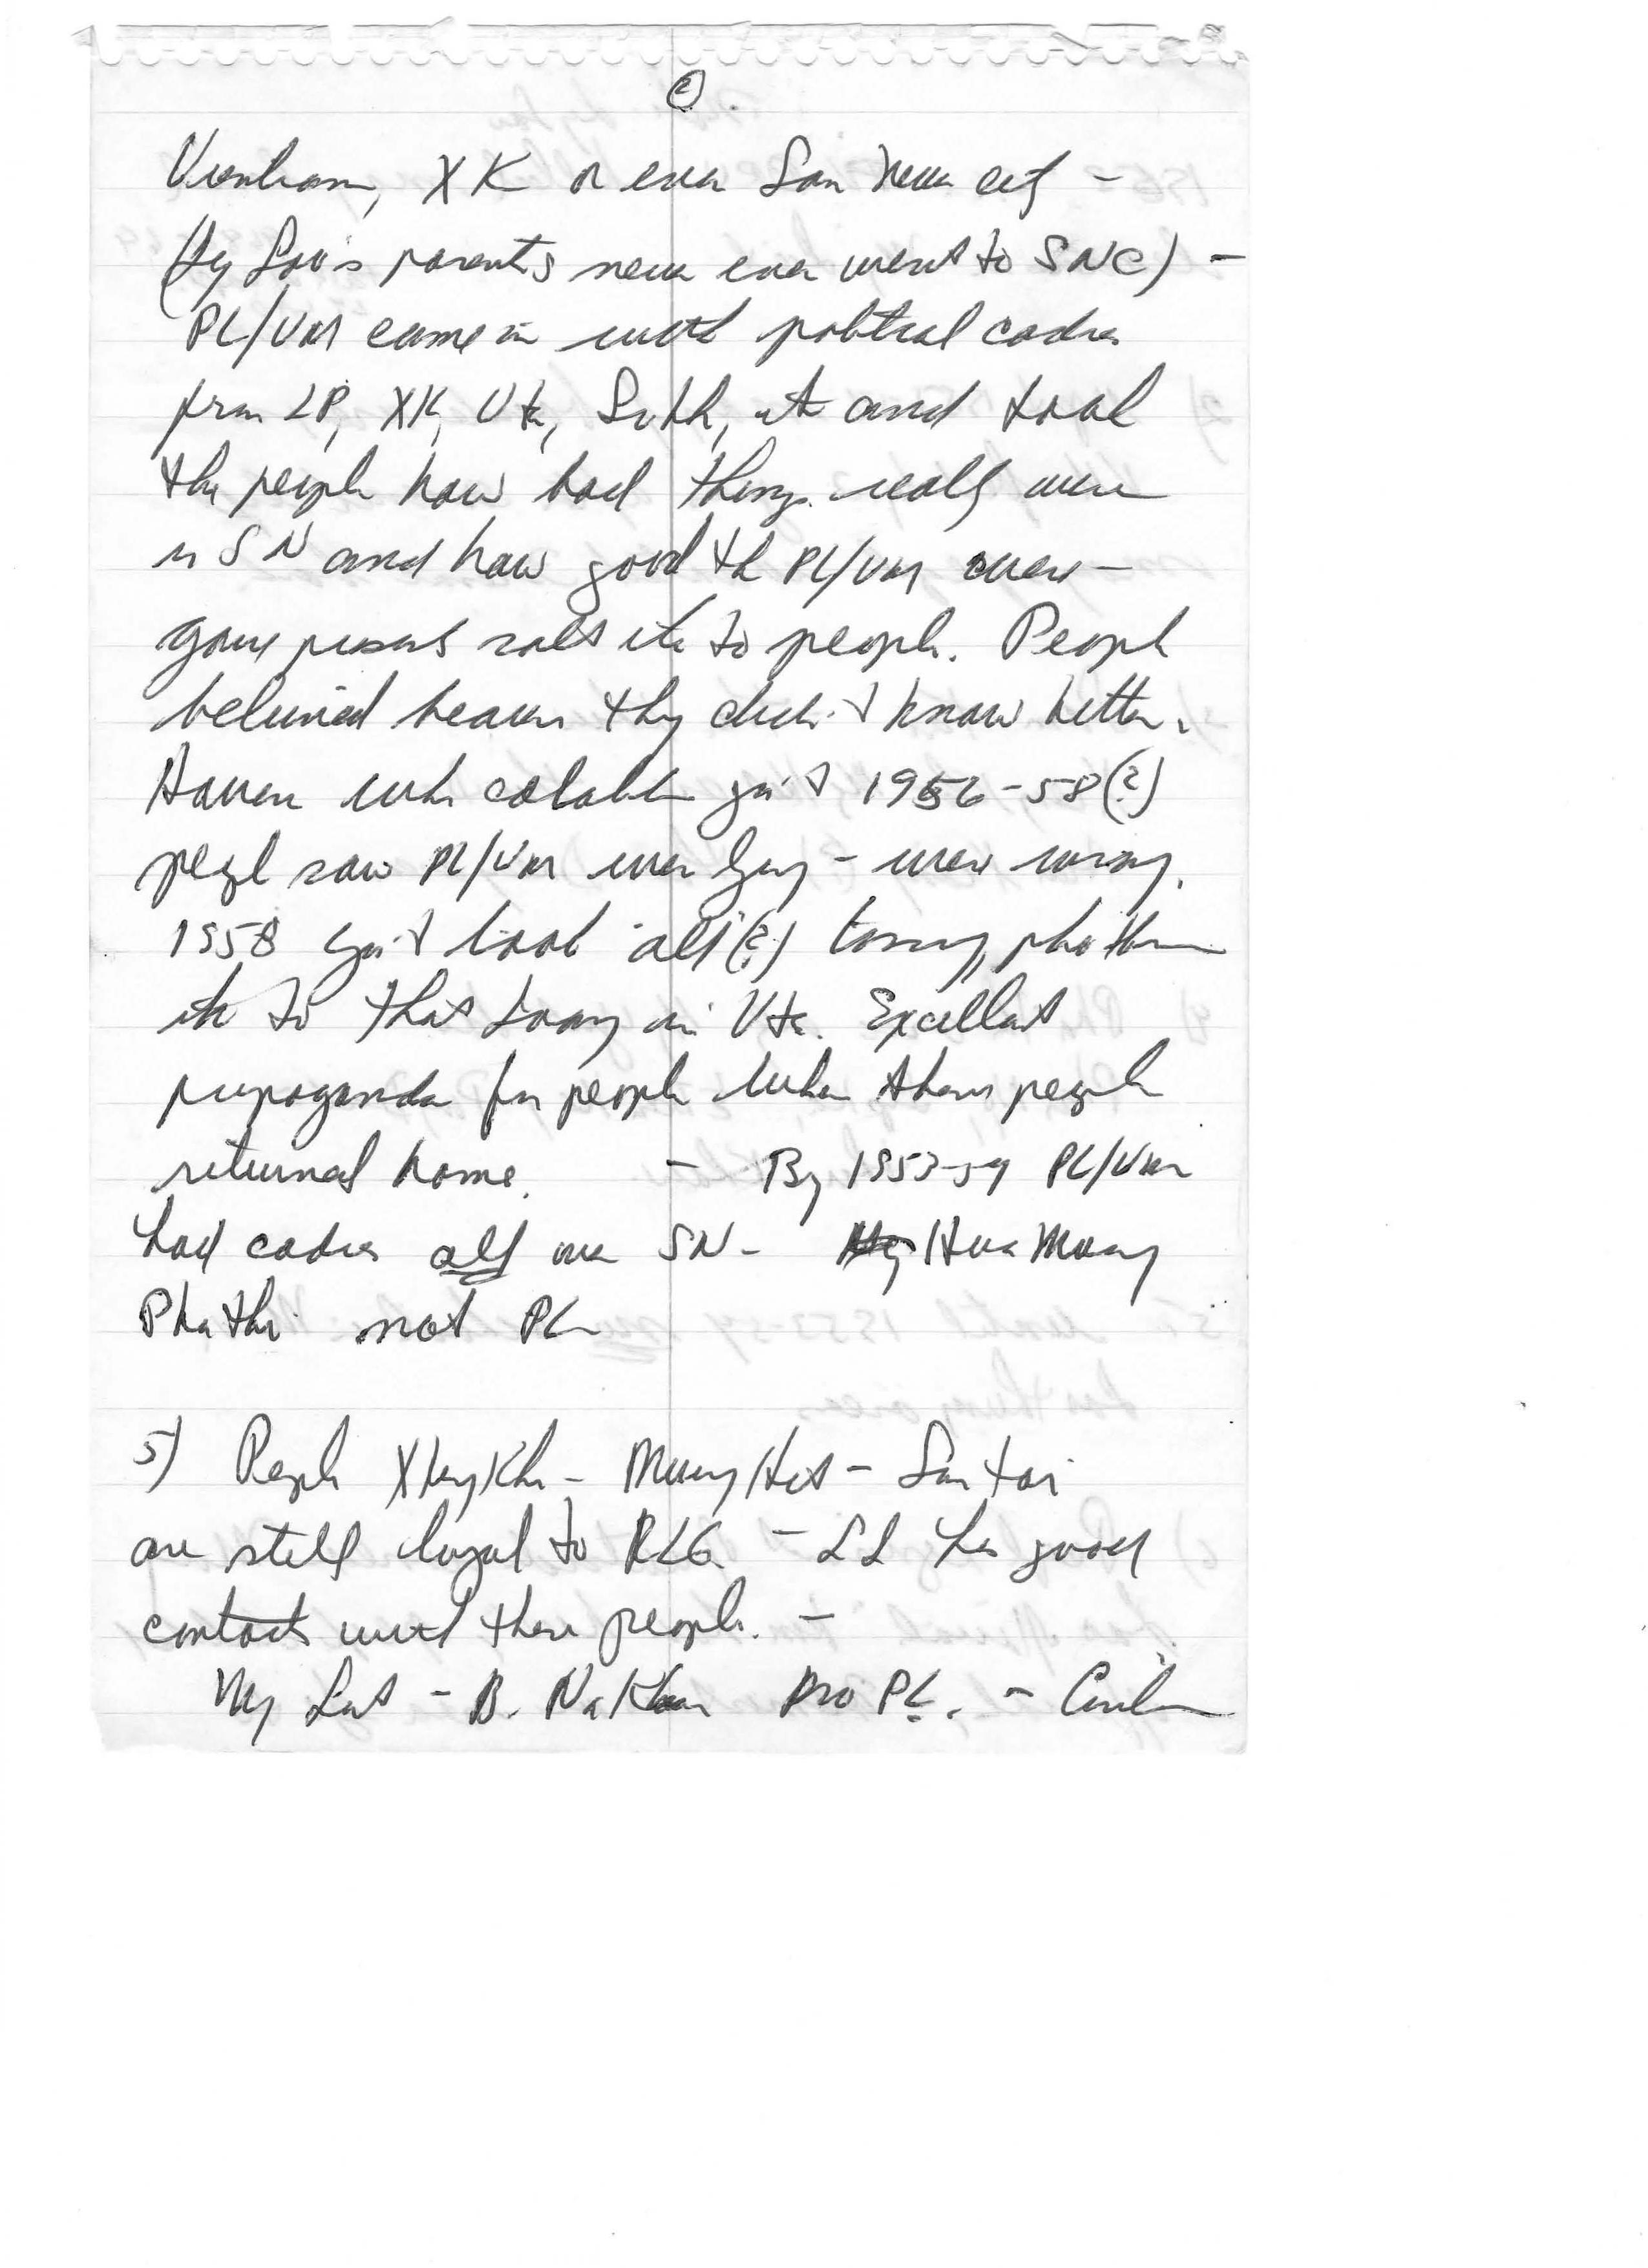 ②.
Vientiane, XK or even Sam Neua city -
(Ly Lou's parents never even went to SNC) -
PL/VM came in with political cadres
from LP, XK, Vte, Suth, etc and told
the people how bad things really were
in SN and how good the PL/VM were -
gave presents salt etc to people. People
believed because they didn't know better.
However when coalition gov't 1956-58(?)
people saw PL/VM were lying - were wrong.
1958 gov't took all(?) tasseng, pho ban
etc to that luang in Vte. Excellent
propoganda for people when these people
returned home. - By 1953-54 PL/VM
had cadres all over SN - Hua Muang
Pha Thi not PL
5) People Xieng Kho - Muong Het - Son Tai
are still loyal to RLG. - LL has good
contacts with these people. -
- B. Na Pro PL. -